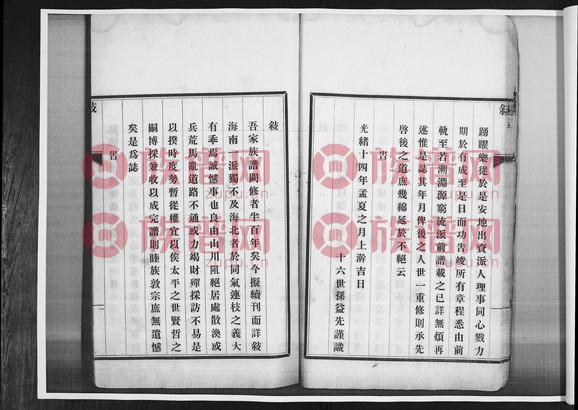 踴躍樂從於是安地出資派人理事同心戮力
期於有成至是日而功告竣所有章程悉由前
軌至若溯淵源窮流派前譜載之已詳無煩再
述惟是誌其年月俾後之人世一重修則承先
啓後之道庶幾綿延於不絕云
旹
光緒十四年孟夏之月上澣吉日
十六世孫益先謹識
敍
吾家族譜間修者半百年矣今擬續刊而詳敍
海南一派獨不及海北者於同氣連枝之義大
有乖焉誠憾事也良由山川阻絕居處散渙或
兵荒馬亂道路不通或力竭財殫採訪不易是
以揆時度勢暫從權宜以俟太平之世賢哲之
嗣博採兼收以成完譜則睦族敦宗庶無遺憾
矣是爲誌
旹
族譜网
zupu.cn
族譜网
zupu.cn
族譜网
zupu.cn
族譜网
zupu.cn